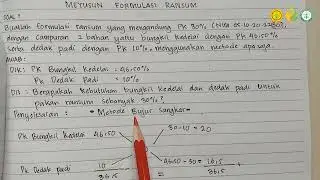 MEYUSUN FORMULASI RANSUM
SOAL :
Buatlah formulasi ransum yang mengandung PK 30% (
dengan campuran 2 bahan yaitu bungkil kedelai dengan PK 46.50%
Serta dedak padi dengan PK 10% menggunakan metode apa saja.
JAWAB :
Dik: PK Bungkil Kedelai : 46.50%
PK Dedak Padi : 10%
Dit = Berapakah kebutuhan bungkil kedelai dan dedak padi untuk
pakan ransum sebanyak 30% ?
Penyelesaian : Metode Bujur Sangkar
PK Bungkil Kedelai 46.50
30-10 = 20
36.5
PK Dedak padi
46.50-30 = 16.5
36.5